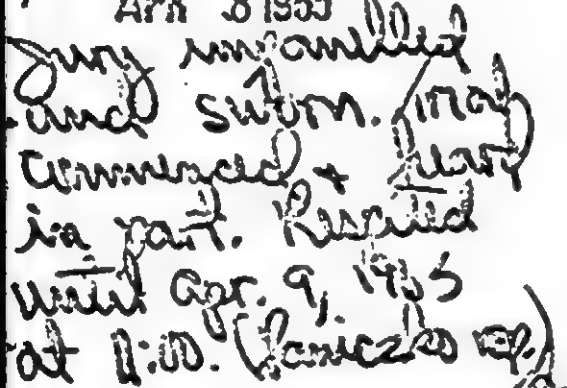 APR 8 1953
Jury impanelled
and sworn. Trial
commenced + heard
in part. Recessed
until Apr. 9, 1953
at 11:00. (Janiczko rep.)